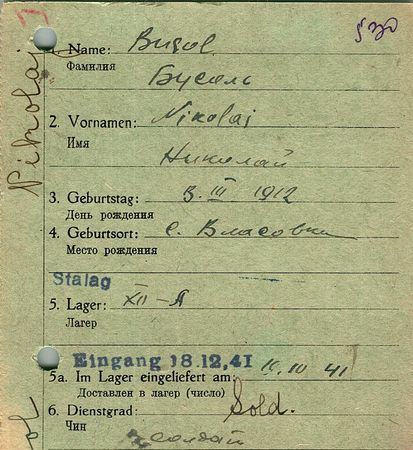 530
1. Name: Busol
Фамилия
Бусоль
2. Vornamen: Nikolaj
Имя
Николай
3. Geburtstag: 3. III 1912
День рождения
4. Geburtsort: с. Власовка
Место рождения
Stalag
5. Lager: XII-A
Лагер
Eingang 18.12.41
5a. Im Lager eingeliefert am: 41
Доставлен в лагер (число)
6. Dienstgrad: Sold.
Чин
солдат
Nikolaj